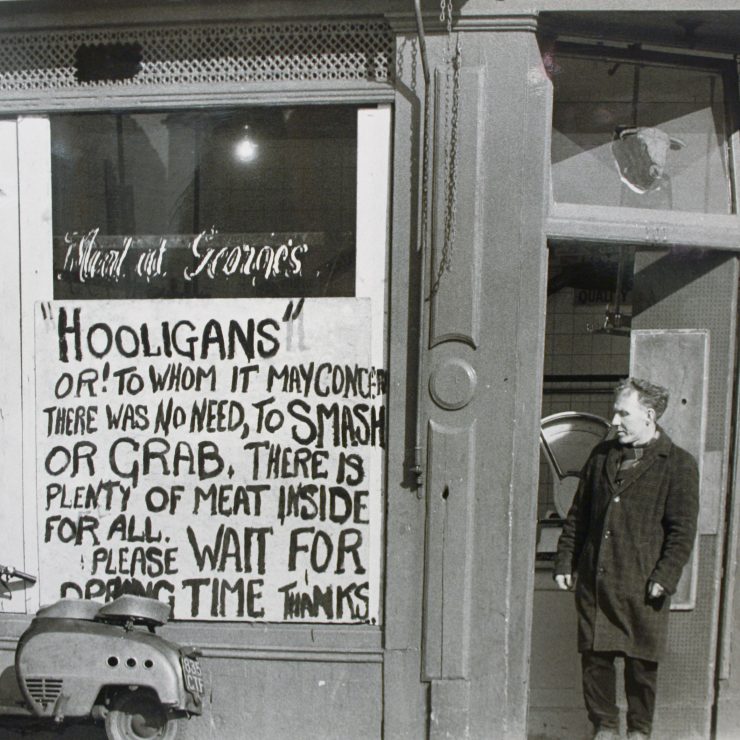 Meat at George's
"HOOLIGANS"
OR! TO WHOM IT MAY CONCER
THERE WAS NO NEED, TO SMASH
OR GRAB. THERE IS
PLENTY OF MEAT INSIDE
FOR ALL.
PLEASE WAIT FOR
OPENING TIME THANKS.
QUALITY